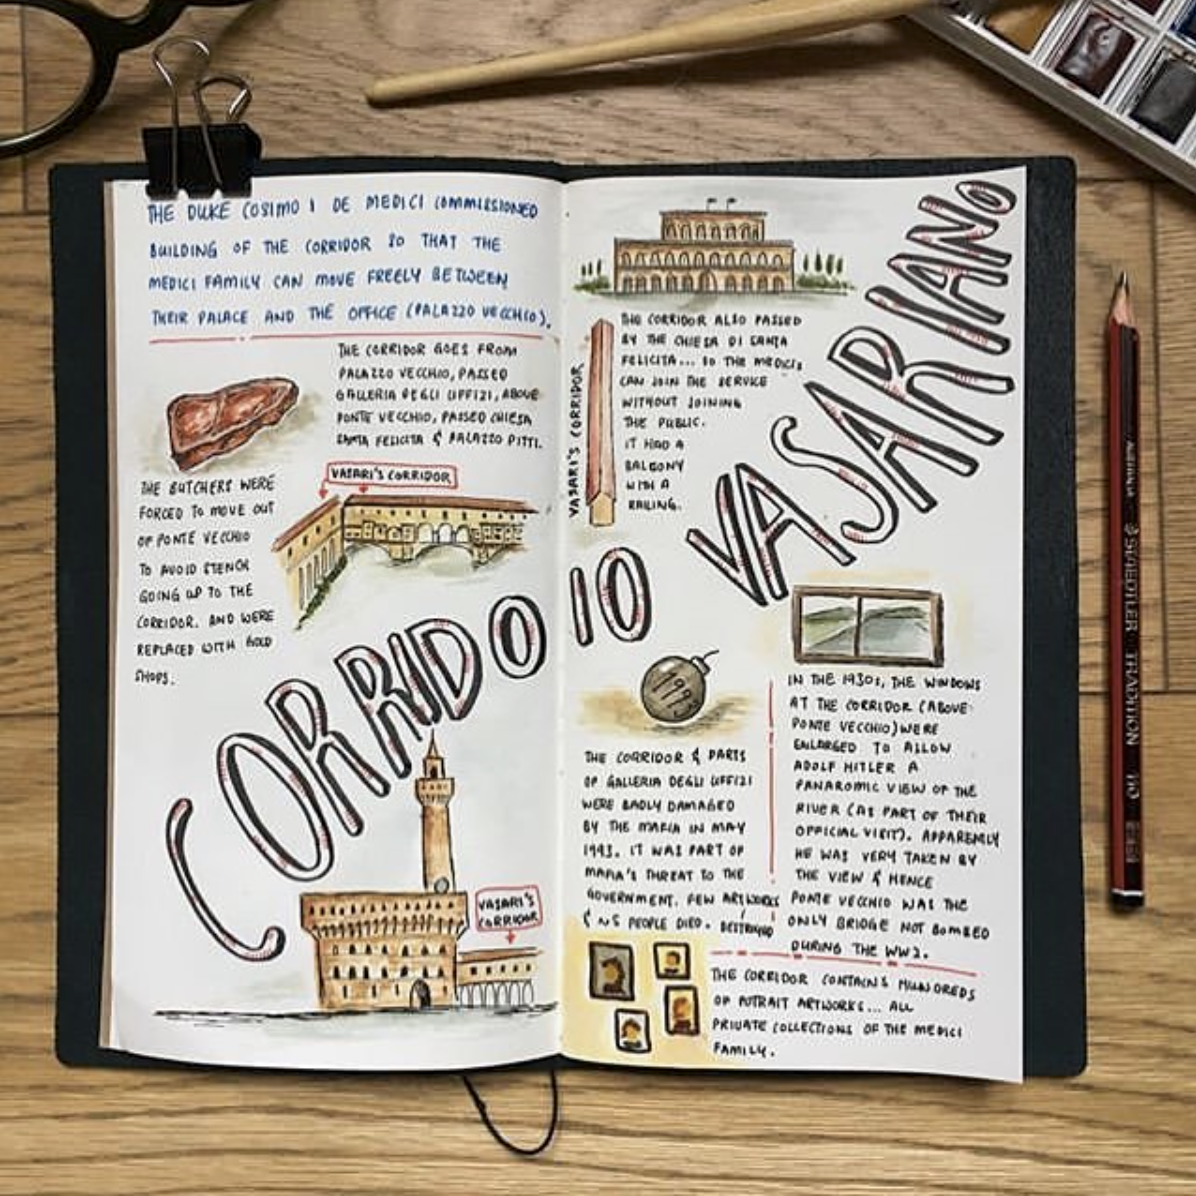 THE DUKE COSIMO I DE MEDICI COMMISSIONED
BUILDING OF THE CORRIDOR SO THAT THE
MEDICI FAMILY CAN MOVE FREELY BETWEEN
THEIR PALACE AND THE OFFICE (PALAZZO VECCHIO).
THE CORRIDOR GOES FROM
PALAZZO VECCHIO, PASSED
GALLERIA DEGLI UFFIZI, ABOVE
PONTE VECCHIO, PASSED CHIESA
SANTA FELICITA & PALAZZO PITTI.
THE BUTCHERS WERE
FORCED TO MOVE OUT
OF PONTE VECCHIO
TO AVOID STENCH
GOING UP TO THE
CORRIDOR. AND WERE
REPLACED WITH GOLD
SHOPS.
VASARI'S CORRIDOR
CORRIDOIO VASARIANO
VASARI'S
CORRIDOR
VASARI'S CORRIDOR
THE CORRIDOR ALSO PASSED
BY THE CHIESA DI SANTA
FELICITA... SO THE MEDICIS
CAN JOIN THE SERVICE
WITHOUT JOINING
THE PUBLIC.
IT HAD A
BALCONY
WITH A
RAILING.
1993
THE CORRIDOR & PARTS
OF GALLERIA DEGLI UFFIZI
WERE BADLY DAMAGED
BY THE MAFIA IN MAY
1993. IT WAS PART OF
MAFIA'S THREAT TO THE
GOVERNMENT. FEW ARTWORKS
& PEOPLE DIED. DESTROYED
IN THE 1930s, THE WINDOWS
AT THE CORRIDOR (ABOVE
PONTE VECCHIO) WERE
ENLARGED TO ALLOW
ADOLF HITLER A
PANAROMIC VIEW OF THE
RIVER (AS PART OF THEIR
OFFICIAL VISIT). APPARENTLY
HE WAS VERY TAKEN BY
THE VIEW & HENCE
PONTE VECCHIO WAS THE
ONLY BRIDGE NOT BOMBED
DURING THE WW2.
THE CORRIDOR CONTAINS HUNDREDS
OF POTRAIT ARTWORKS... ALL
PRIVATE COLLECTIONS OF THE MEDICI
FAMILY.
STAEDTLER TRADITION